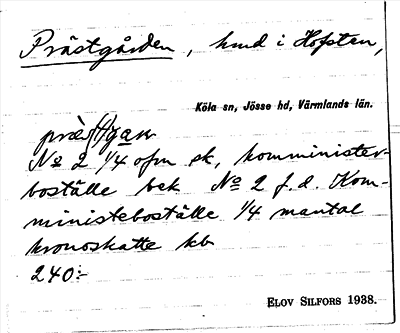 Prästgården, hmd i Hofsten,
Köla sn, Jösse hd, Värmlands län.
No 2 1/4 ofm sk, komminister-
boställe bek No 2 f. d. Kom-
ministeboställe 1/4 mantal
kronoskatte kb
240:-
ELOV SILFORS 1938.